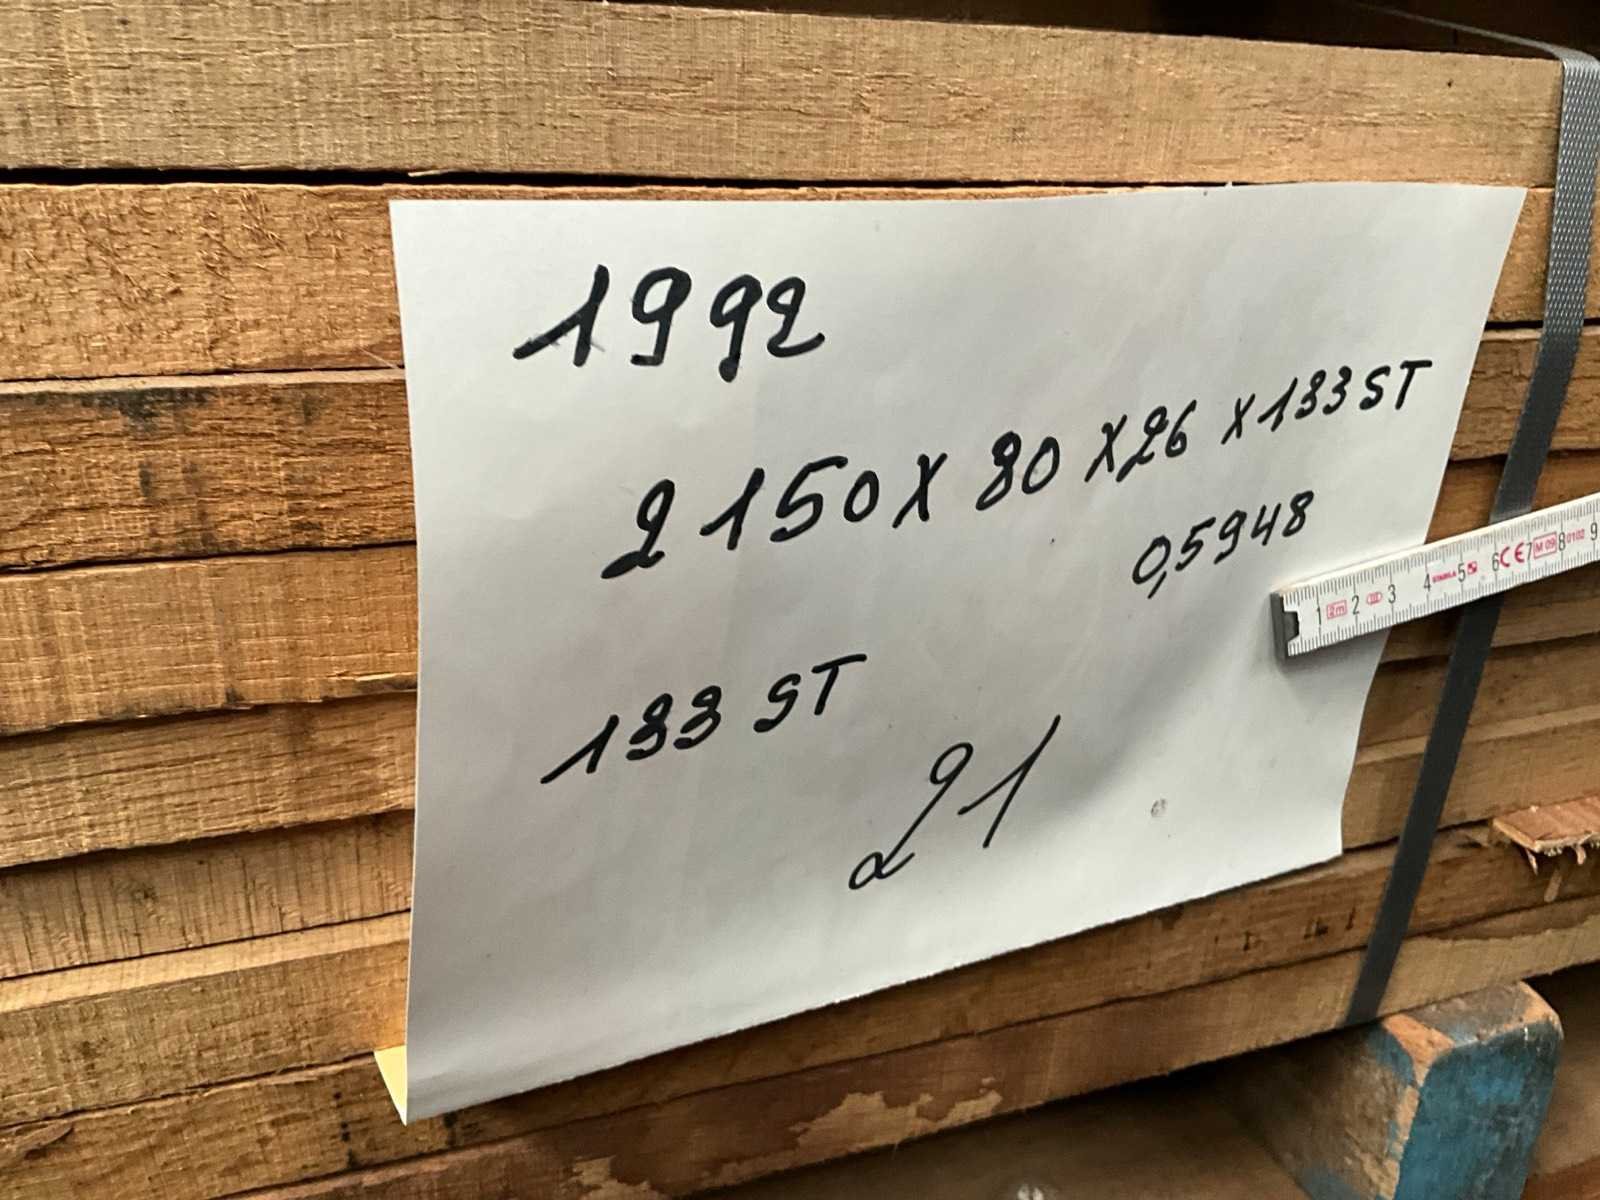 1992
2150 x 80 x 26 x 133 ST
0,5948
133 ST
21
1 2m 2 III 3 4 STABILA 5 6 CE 7 M 09 8 0102 9